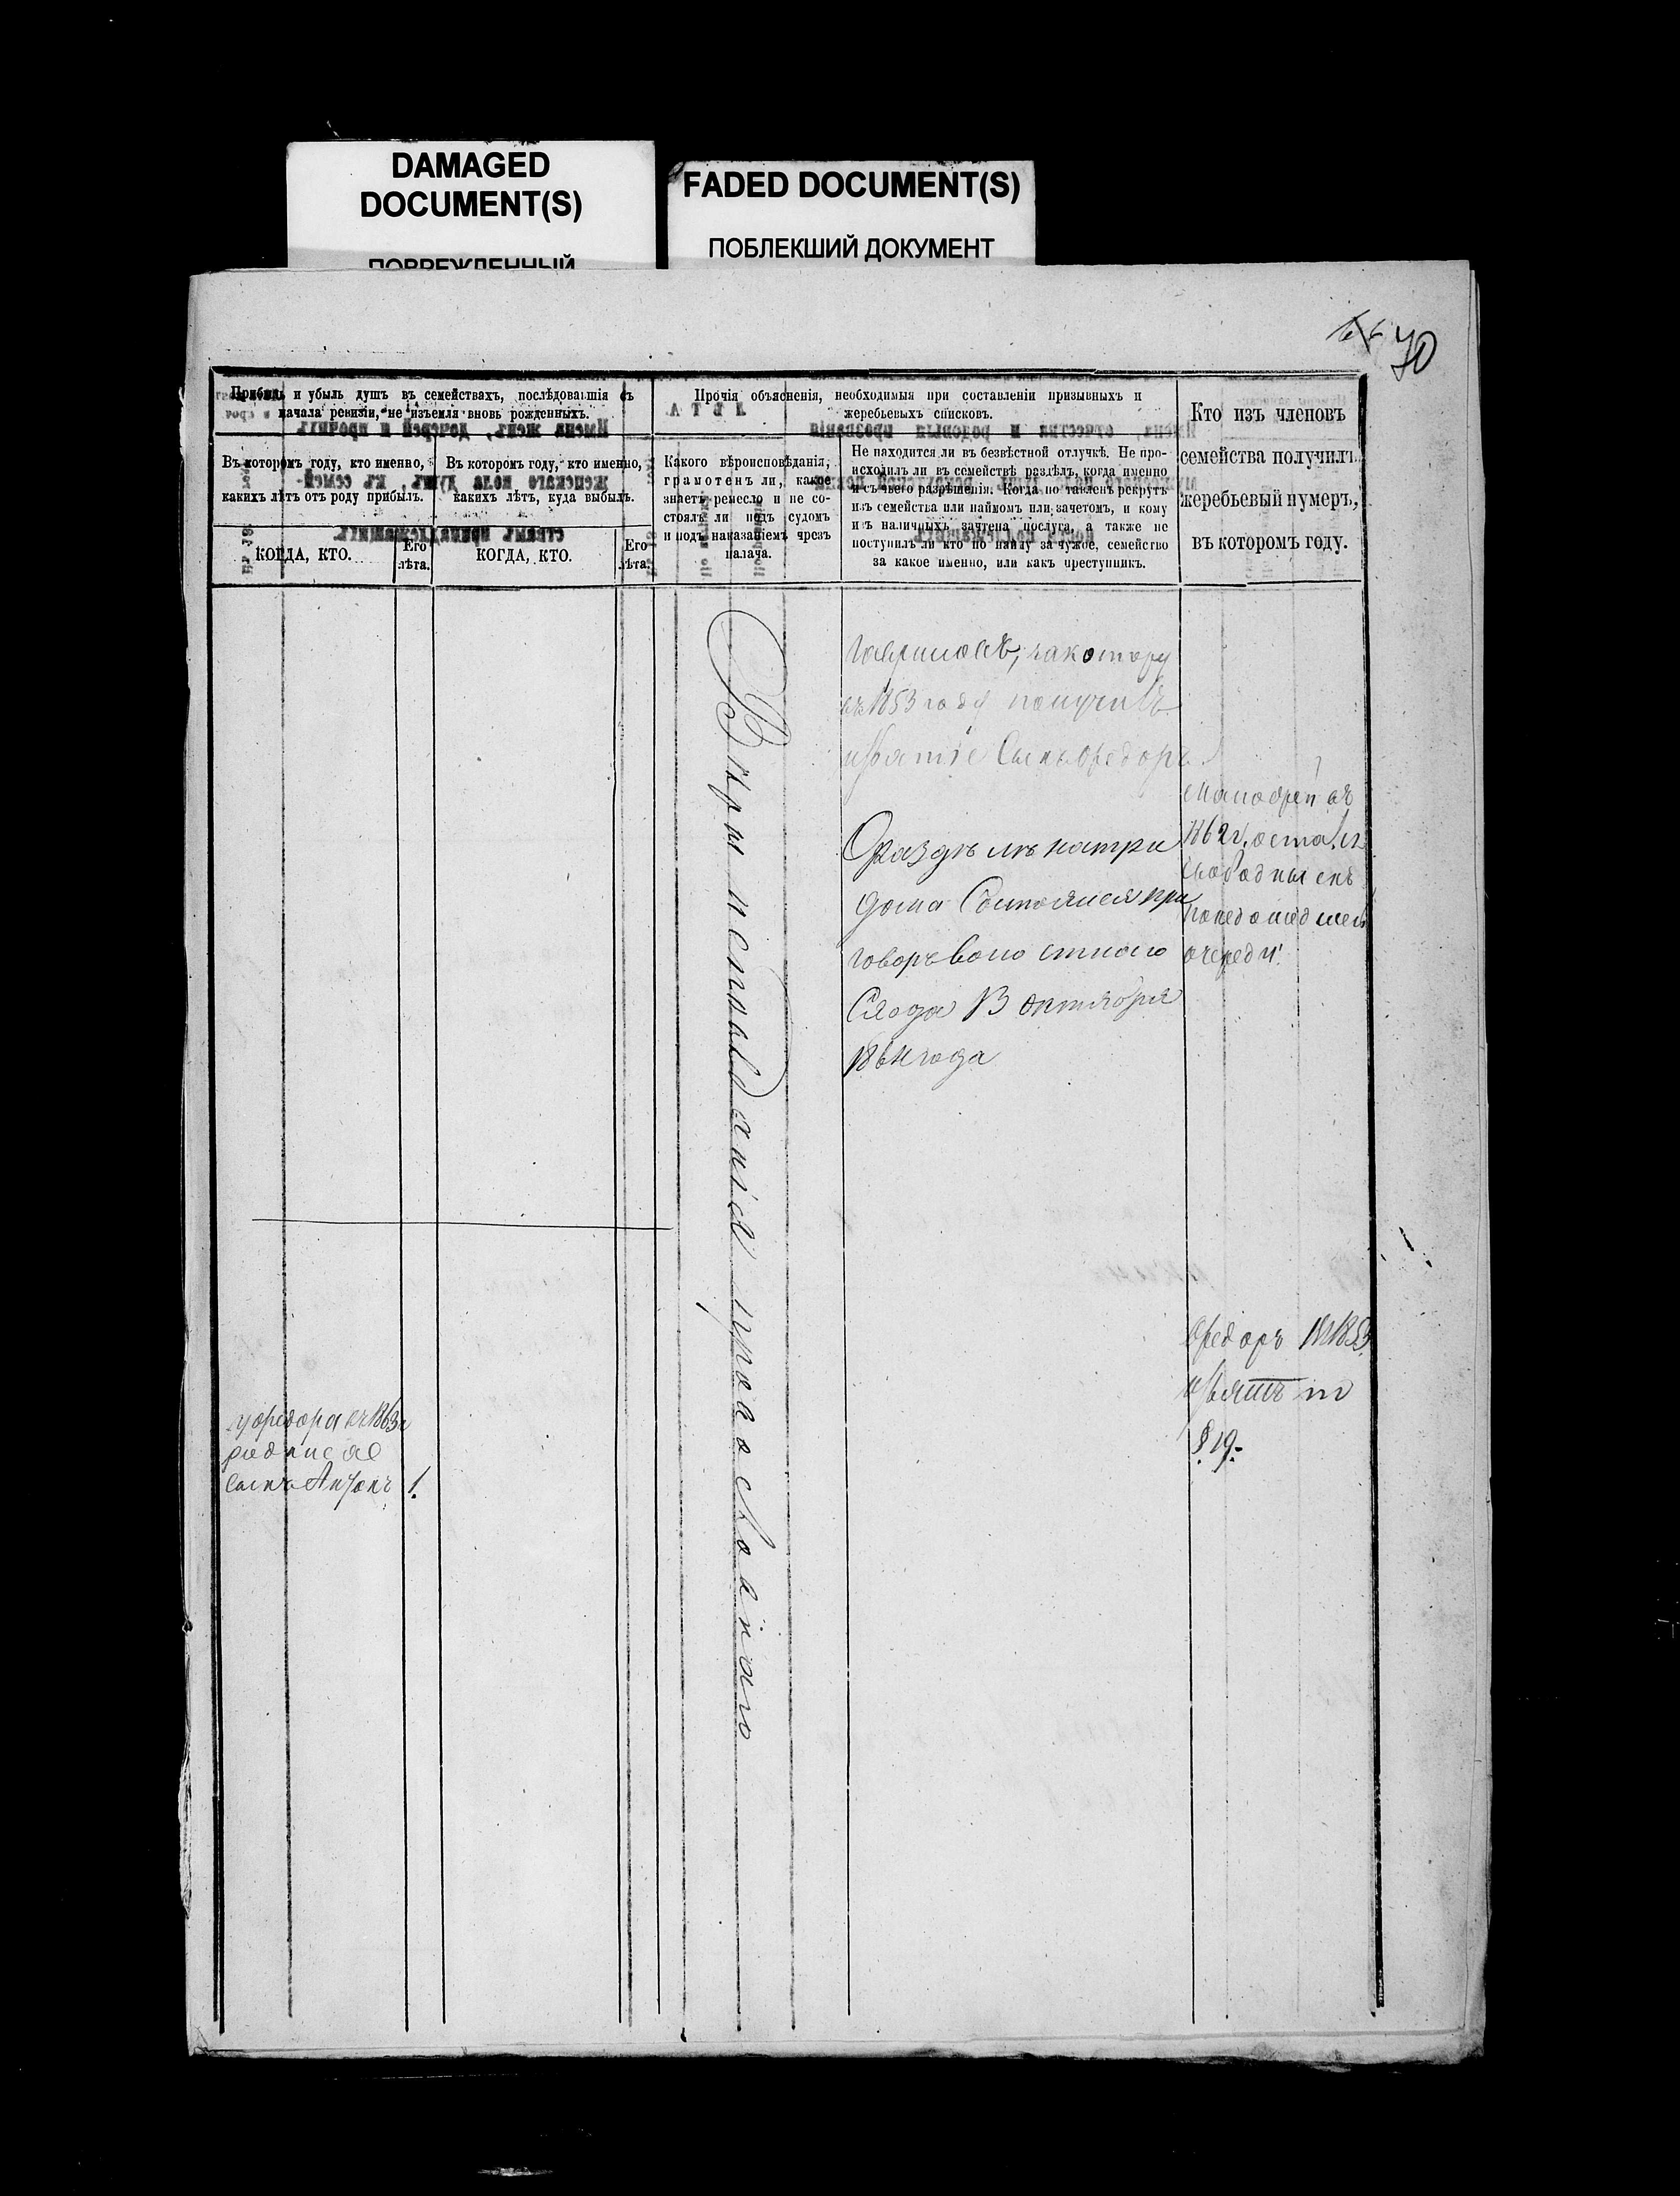 DAMAGED
DOCUMENT(S)
ПОВРЕЖДЕННЫЙ
FADED DOCUMENT(S)
ПОБЛЕКШИЙ ДОКУМЕНТ
70
Прибыль и убыль душъ въ семействахъ, послѣдовавшія съ
начала ревизіи, не изъемля вновь рожденныхъ.
Въ которомъ году, кто именно,
какихъ лѣтъ отъ роду прибылъ.
КОГДА, КТО.
Его
лѣта.
Въ которомъ году, кто именно,
какихъ лѣтъ, куда выбылъ.
КОГДА, КТО.
Его
лѣта.
Прочія объясненія, необходимыя при составленіи призывныхъ и
жеребьевыхъ списковъ.
Какого вѣроисповѣданія,
грамотенъ ли, какое
знаетъ ремесло и не со-
стоялъ ли подъ судомъ
и подъ наказаніемъ чрезъ
палача.
Не находится ли въ безвѣстной отлучкѣ. Не про-
исходилъ ли въ семействѣ раздѣлъ, когда именно
и съ чьего разрѣшенія. Когда поставленъ рекрутъ
изъ семейства или наймомъ или зачетомъ, и кому
изъ наличныхъ зачтена послуга, а также не
поступилъ ли кто по найму за чужое, семейство
за какое именно, или какъ преступникъ.
Кто изъ членовъ
семейства получилъ
жеребьевый нумеръ,
въ которомъ году.
Вѣры исповѣданія православнаго
Гавриловъ, закотору
въ 1853 году получилъ
Сынъ Федоръ
Раздѣлъ натри
дома Состоялся при
говоръ волостного
Схода 13 октября
1864 года
въ
1862 г. остал.ся
свободнымъ
понедошедшей
очереди.
Федоръ 1853
изъятъ по
§ 19.
у Федора въ 1863 г
родился
сынъ Антонъ 1.